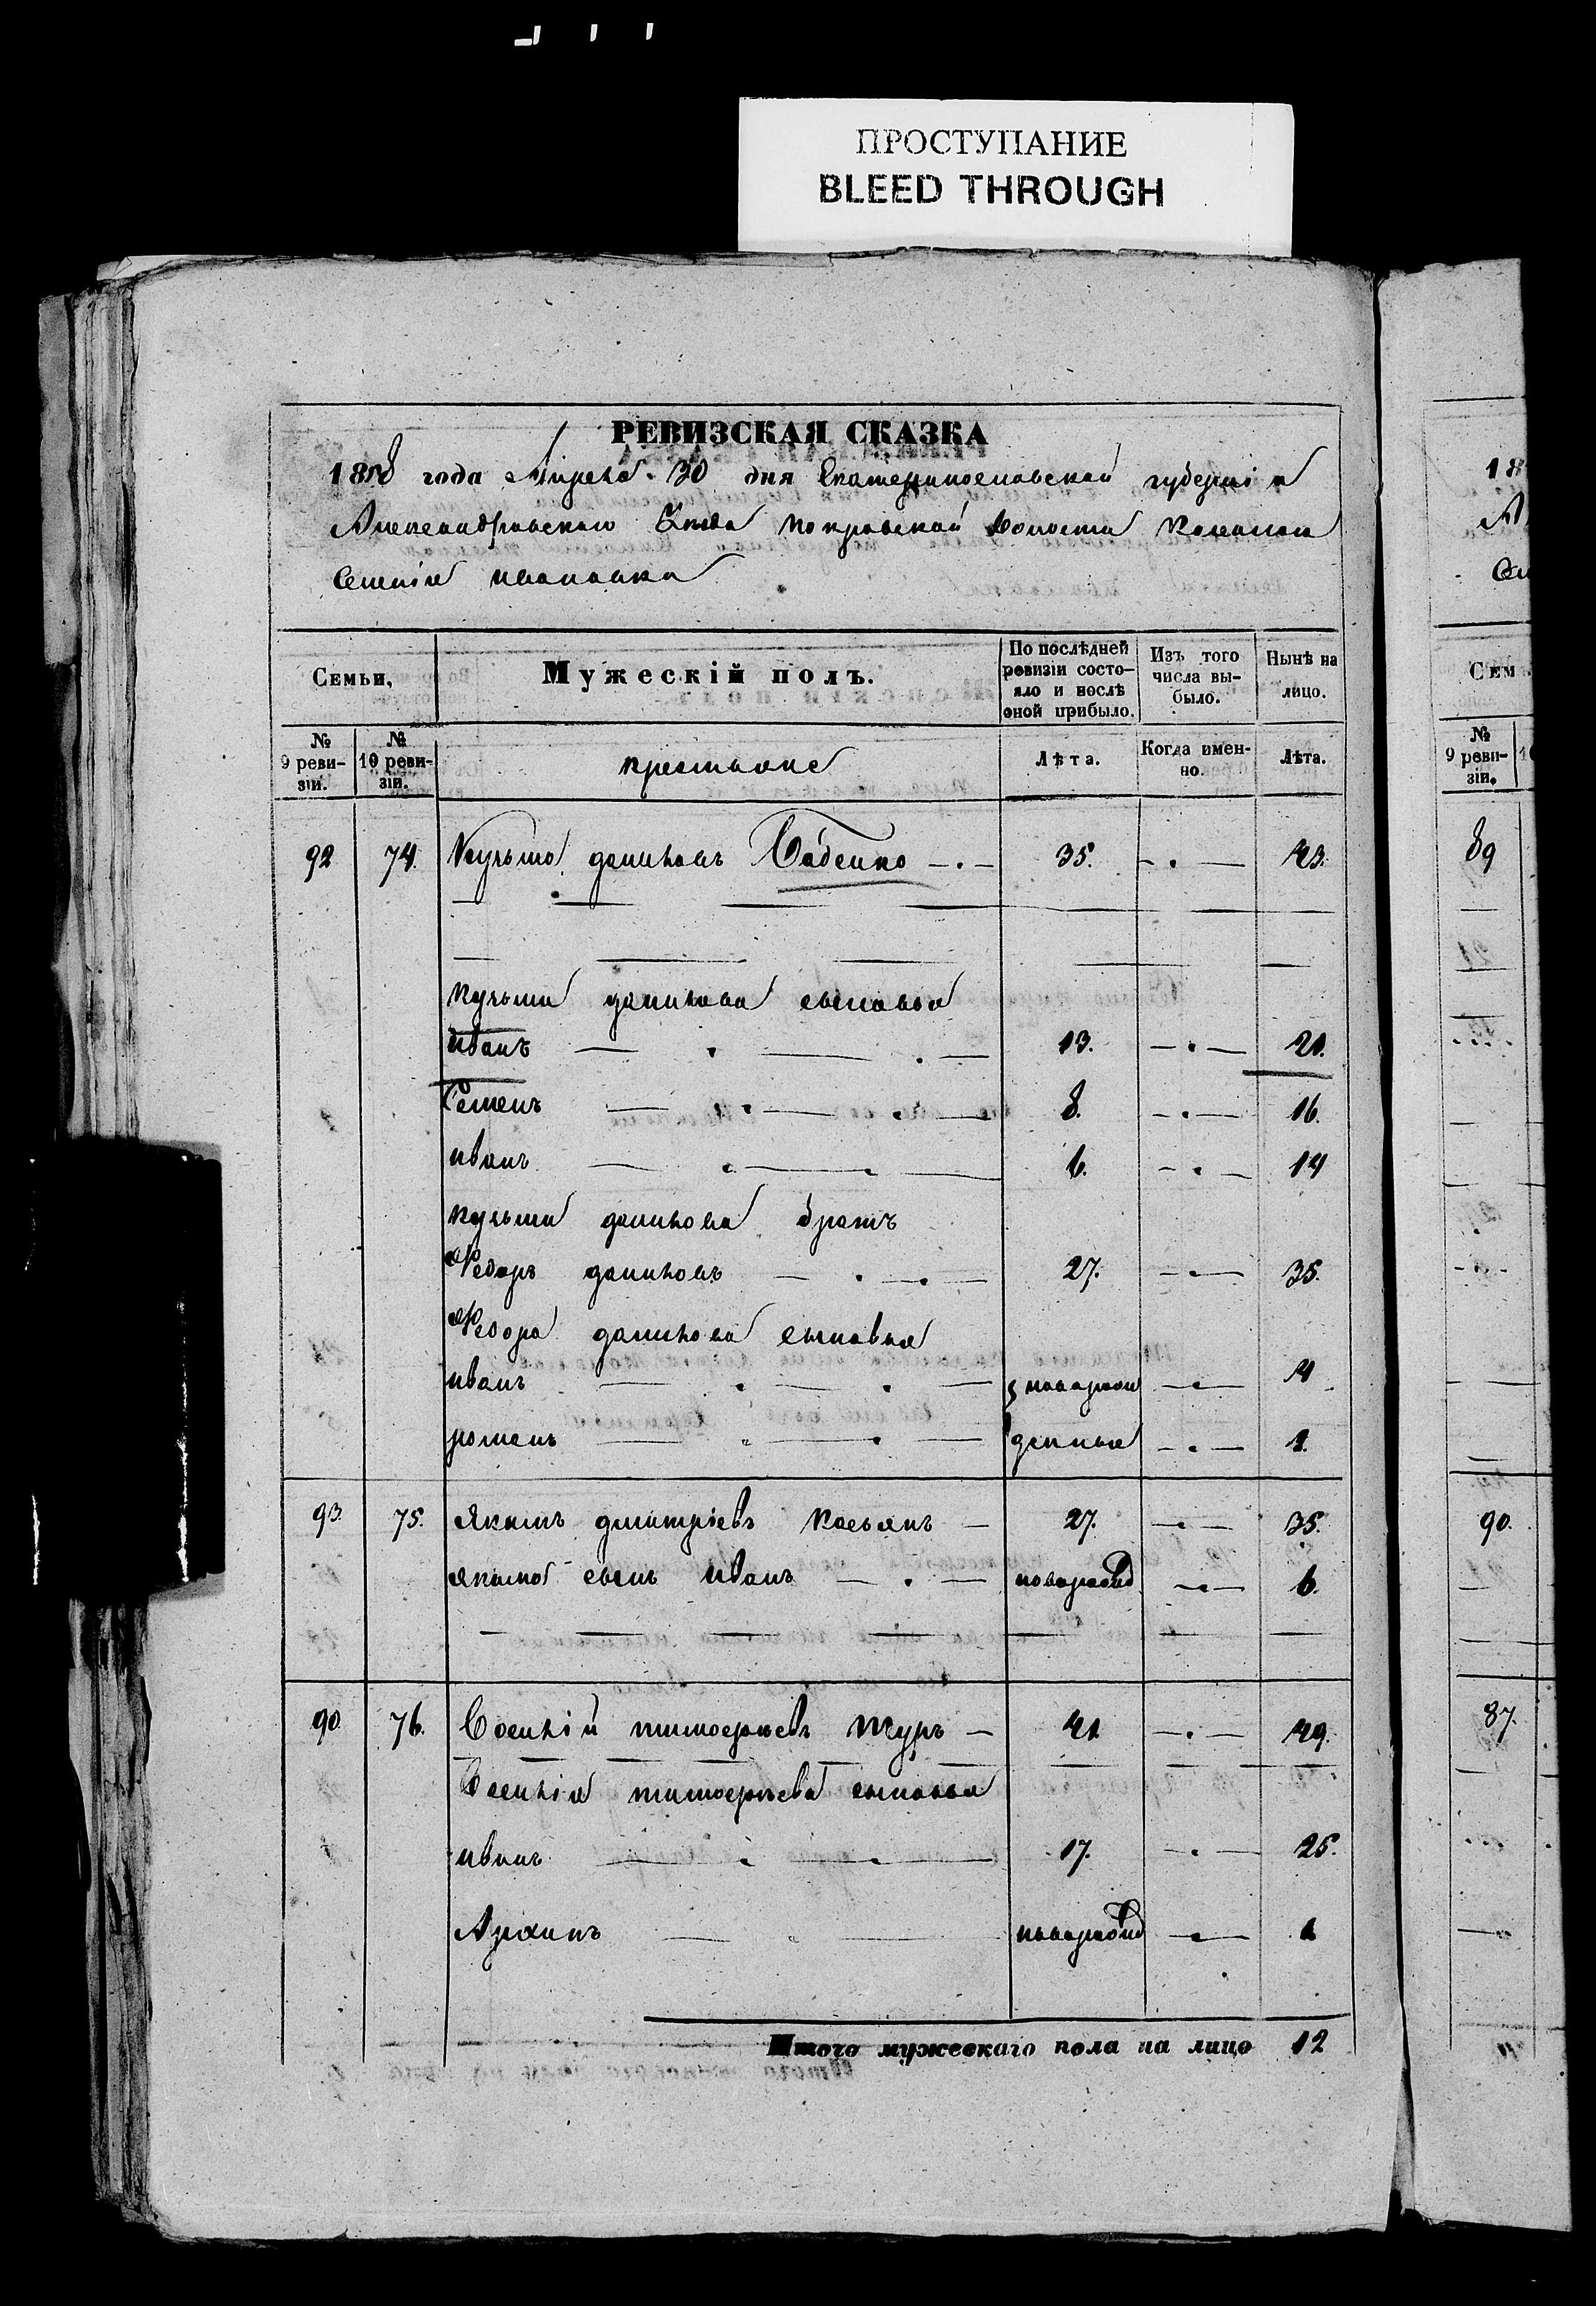 ПРОСТУПАНИЕ
BLEED THROUGH
РЕВИЗСКАЯ СКАЗКА
1858 года Апреля 30 дня Екатеринославской губернии
Александровскаго уезда Покровской волости
Селения Ивановка
Семьи,
Мужескій полъ.
По послѣдней ревизіи состояло и послѣ оной прибыло.
Изъ того числа выбыло.
Нынѣ на лицо.
№ 9 ревизіи.
№ 10 ревизіи.
крестьяне
Лѣта.
Когда именно.
Лѣта.
92 74. Кузьма Даниловъ Бабенко 35. 43.
Кузьмы Данилова сыновья
Иванъ 13. 21.
Семенъ 8. 16.
Иванъ 6. 14
Кузьмы Данилова братъ
Федоръ Даниловъ 27. 35.
Федора Данилова сыновья
Иванъ новорож 4
Романъ денные 1.
93. 75. Якимъ Дмитріевъ Касьянъ 27. 35.
Якима сынъ Иванъ новорожд 6.
90 76. Василій Тимоѳеевъ Журъ 41 49.
Василія Тимоѳеева сыновья
Иванъ 17. 25.
Архипъ новорожд 6
Итого мужескаго пола на лицо 12
18
Сем
№ 9 ревизіи.
89
90.
87.